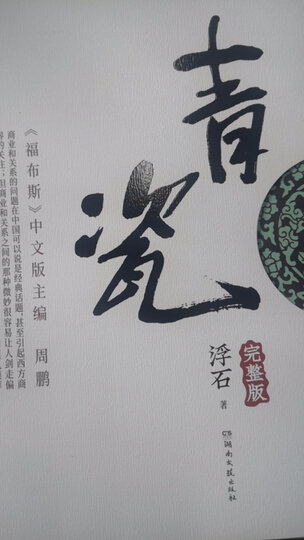 青瓷
完整版
浮石 著
湖南文艺出版社
《福布斯》中文版主编 周鹏
商业和关系的问题在中国可以说是经典话题,甚至引起西方商
界的关注;但商业和关系之间的那种微妙很容易让人剑走偏